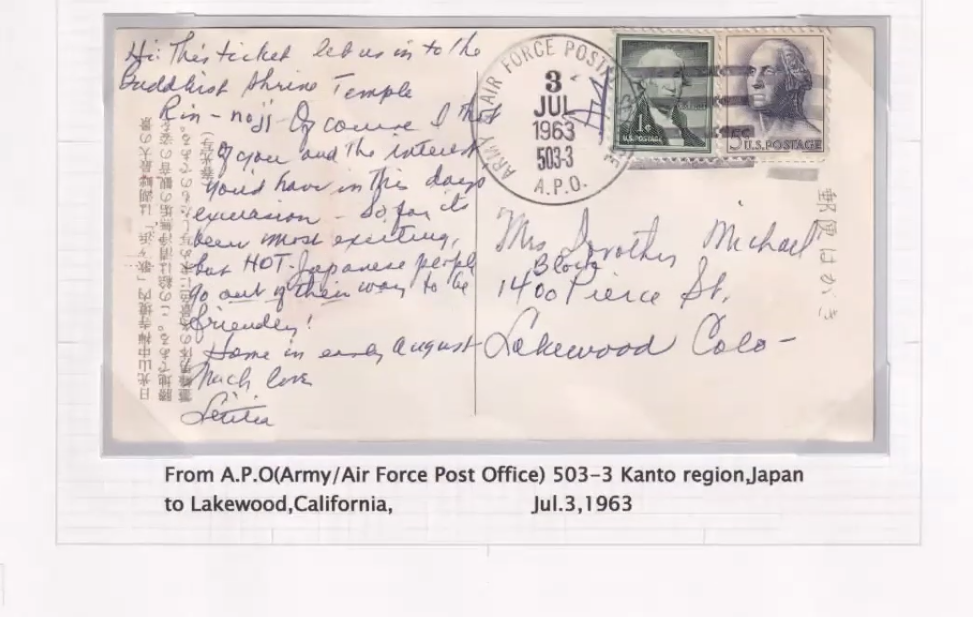 Hi: This ticket let us in to the
Buddhist Shrine Temple
Rin-noji Of course I thot
of you and the interest
you'd have in this days
excursion - So far its
been most exciting,
but HOT. Japanese people
go out of their way to be
friendly!
Home in early August
Much love
Letitia
ARMY AIR FORCE POSTAL
3
JUL
1963
503-3
A.P.O.
1¢
U.S. POSTAGE
5
U.S. POSTAGE
Mrs Dorothy Michael
Block
1400 Pierce St.
Lakewood Colo-
郵便はがき
日光山中禅寺境内「歌ヶ浜」は湖畔最大の景
勝地である。この絵は清浄無垢の観音の姿を
したものである。
From A.P.O(Army/Air Force Post Office) 503-3 Kanto region,Japan
to Lakewood,California, Jul.3,1963